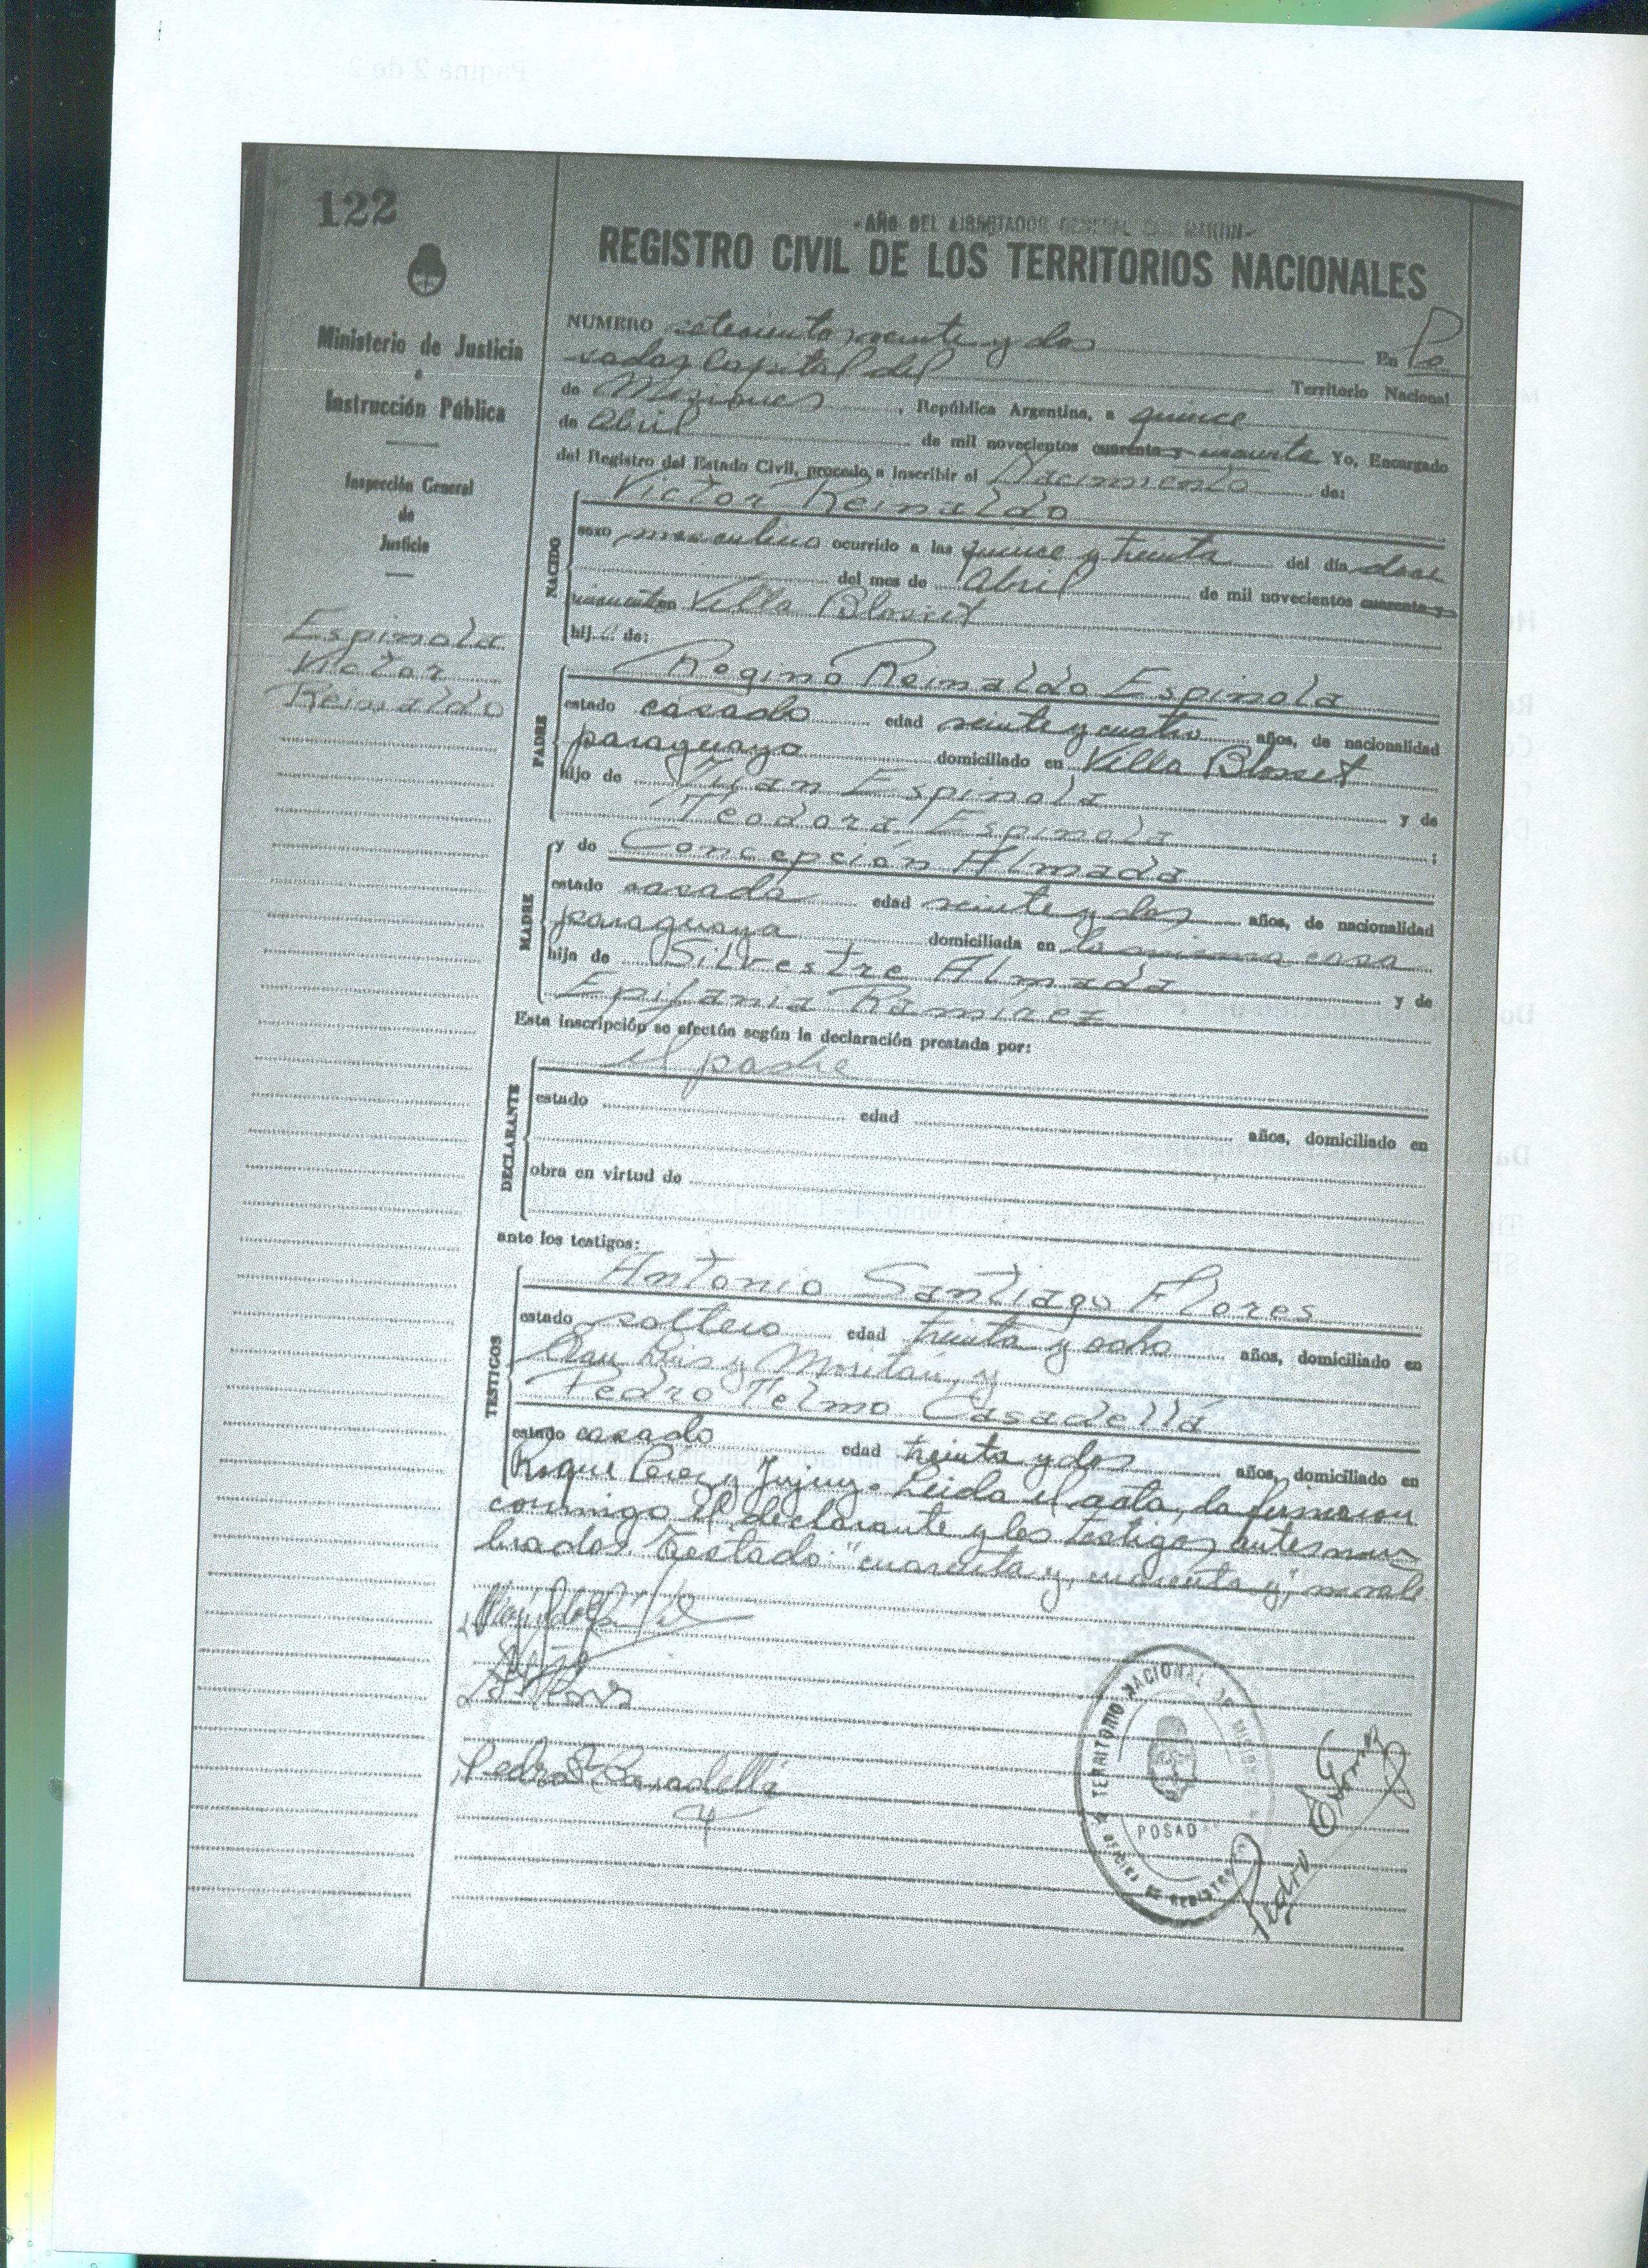 122
-AÑO DEL LIBERTADOR GENERAL SAN MARTIN-
REGISTRO CIVIL DE LOS TERRITORIOS NACIONALES
Ministerio de Justicia
e
Instrucción Pública
Inspección General
de
Justicia
Espinola
Victor
Reinaldo
NUMERO setecientos veinte y dos En Po
sadas Capital del Territorio Nacional
de Misiones, República Argentina, a quince
de Abril de mil novecientos cuarenta y cincuenta Yo, Encargado
del Registro del Estado Civil, procedo a inscribir el Nacimiento de:
NACIDO
Victor Reinaldo
sexo masculino ocurrido a las quince y treinta del día doce
del mes de Abril de mil novecientos cuarenta y
cincuenta en Villa Blosset
hij o de:
PADRE
Regino Reinaldo Espinola
estado casado edad veinte y cuatro años, de nacionalidad
paraguayo domiciliado en Villa Blosset
hijo de Juan Espinola y de
Teodora Espinola ;
MADRE
y de Concepción Almada
estado casada edad veinte y dos años, de nacionalidad
paraguaya domiciliada en la misma casa
hija de Silvestre Almada y de
Epifania Ramírez
Esta inscripción se efectúa según la declaración prestada por:
DECLARANTE
el padre
estado edad años, domiciliado en
obra en virtud de
ante los testigos:
TESTIGOS
Antonio Santiago Flores
estado soltero edad treinta y ocho años, domiciliado en
San Luis y Moritán, y
Pedro Telmo Casadellá
estado casado edad treinta y dos años, domiciliado en
Roque Perez y Jujuy. Leida el acta, la firmaron
conmigo el declarante y los testigos antes nom
brados. Testado: "cuarenta y, cuarenta y", no vale
Pedro T. Casadellá
TERRITORIO NACIONAL DE MISIONES
OFICINA DE REGISTRO
POSADAS